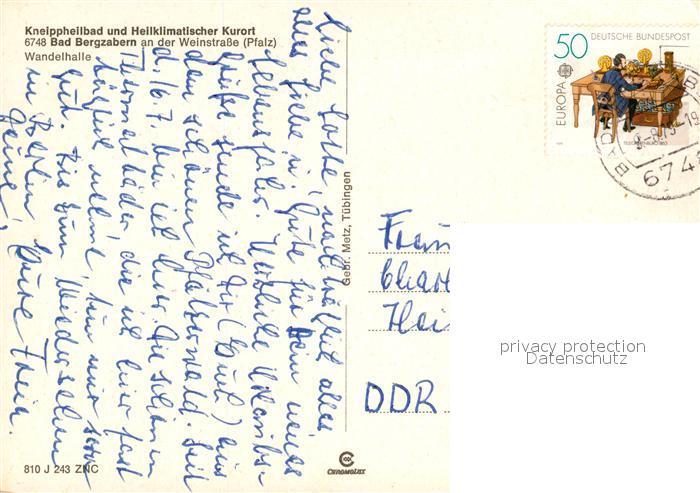 Kneippheilbad und Heilklimatischer Kurort
6748 Bad Bergzabern an der Weinstraße (Pfalz)
Wandelhalle
Liebe Lotte, nachträglich alles
alles Liebe u. Gute für Dein neues
Lebensjahr. Herzliche
Grüße sende ich Dir (Euch) aus
dem schönen Pfälzerwald. Seit
d. 16.7. bin ich hier. Die schönen
Thermalbäder, die ich hier fast
nehme, tun mir sehr
gut. Bis zum Wiedersehen
in Berlin
Eure Freia.
Gebr. Metz, Tübingen
50 DEUTSCHE BUNDESPOST
EUROPA
674
Frau
Charl
Hei
DDR
privacy protection
Datenschutz
810 J 243 ZNC
CHROMOLUX